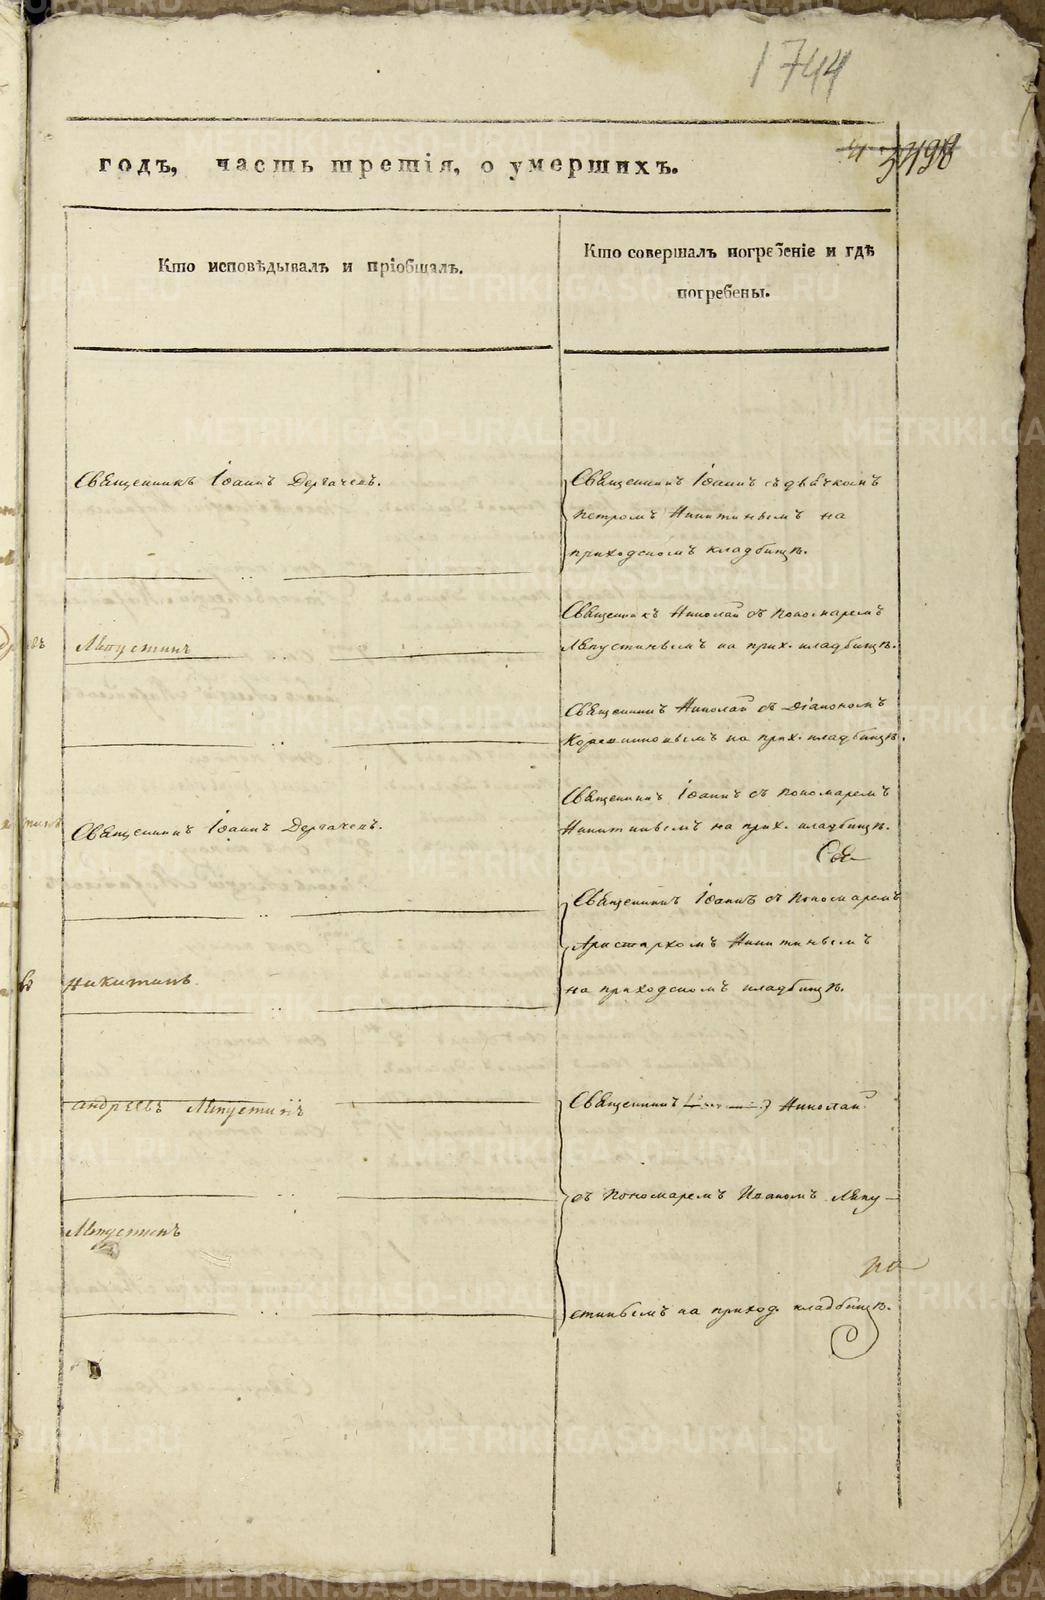 1744
3498
годъ, часть третія, о умершихъ.
Кто исповѣдывалъ и пріобщалъ.
Кто совершалъ погребеніе и гдѣ
погребены.
Священникъ Іоаннъ Дергачевъ.
Священникъ Іоаннъ съ дьячкомъ
Петромъ Никитинымъ на
приходскомъ кладбищѣ.
Священникъ Николай съ пономаремъ
Ляпустинъ
Ляпустинымъ на прих. кладбищѣ.
Священникъ Николай съ Діакономъ
на прих. кладбищѣ.
Священникъ Іоаннъ съ пономаремъ
Священникъ Іоаннъ Дергачевъ.
Никитинымъ на прих. кладбищѣ.
Священникъ Іоаннъ съ пономаремъ
Аристархомъ Никитинымъ
Никитинъ
на приходскомъ кладбищѣ.
андреевъ Ляпустинъ
Священникъ Николай
съ пономаремъ Иваномъ Ляпу-
Ляпустинъ
по
стинымъ на приход. кладбищѣ.
METRIKI.GASO-URAL.RU